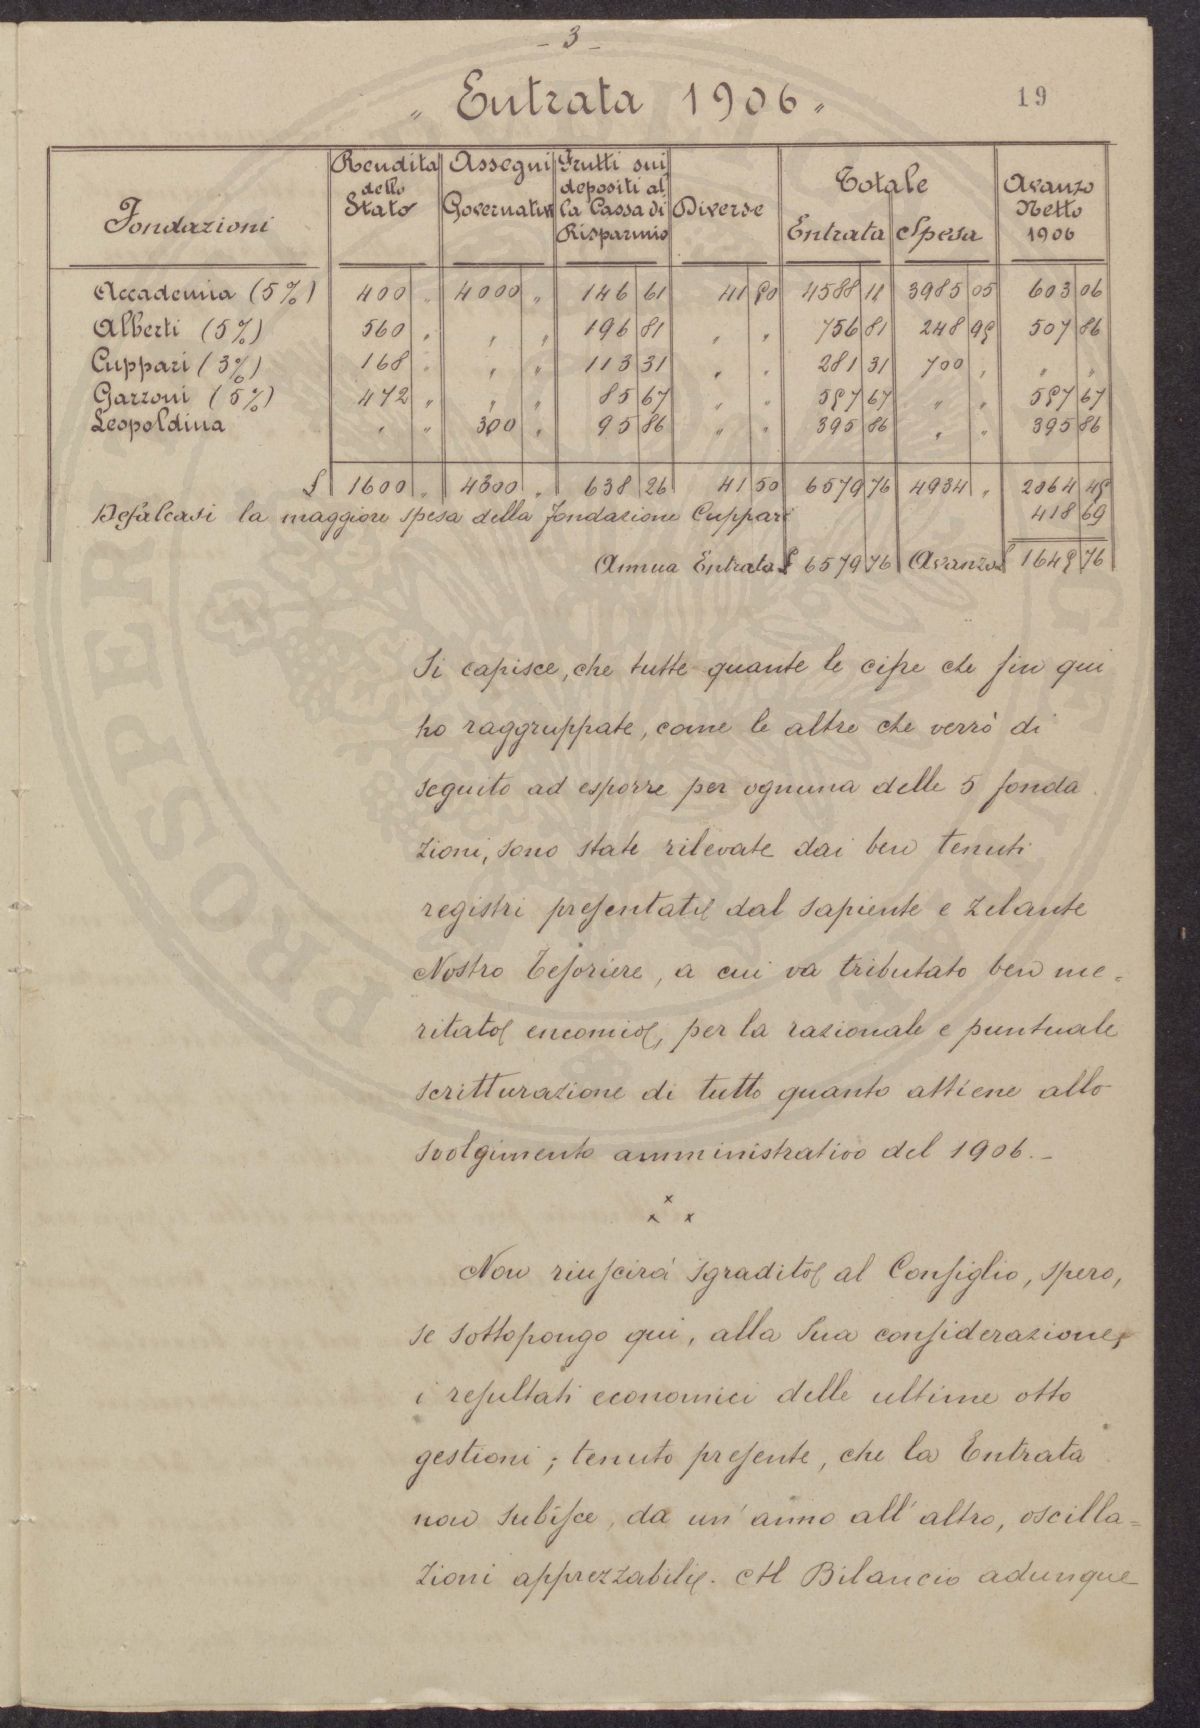 - 3 -
19
" Entrata 1906 "
Fondazioni | Rendita dello Stato | Assegni Governativi | Frutti sui depositi alla Cassa di Risparmio | Diverse | Totale Entrata | Spesa | Avanzo Netto 1906
Accademia (5%) | 400 " | 4000 " | 146 61 | 41 50 | 4588 11 | 3985 05 | 603 06
Alberti (5%) | 560 " | " " | 196 81 | " " | 756 81 | 248 95 | 507 86
Cuppari (3%) | 168 " | " " | 113 31 | " " | 281 31 | 700 " | " "
Garzoni (5%) | 472 " | " " | 85 67 | " " | 557 67 | " " | 557 67
Leopoldina | " " | 300 " | 95 86 | " " | 395 86 | " " | 395 86
£ | 1600 " | 4300 " | 638 26 | 41 50 | 6579 76 | 4934 " | 2064 45
Defalcasi la maggiore spesa della fondazione Cuppari 418 69
Annua Entrata £ 6579 76 Avanzo £ 1645 76
Si capisce, che tutte quante le cifre che fin qui
ho raggruppate, come le altre che verrò di
seguito ad esporre per ognuna delle 5 fonda
zioni, sono state rilevate dai ben tenuti
registri presentati dal sapiente e zelante
Nostro Tesoriere, a cui va tributato ben me=
ritato encomio, per la razionale e puntuale
scritturazione di tutto quanto attiene allo
svolgimento amministrativo del 1906.-
x x x
Non riuscirà sgradito al Consiglio, spero,
se sottopongo qui, alla Sua considerazione,
i resultati economici delle ultime otto
gestioni; tenuto presente, che la Entrata
non subisce, da un'anno all'altro, oscilla=
zioni apprezzabili. Al Bilancio adunque
PROSPER